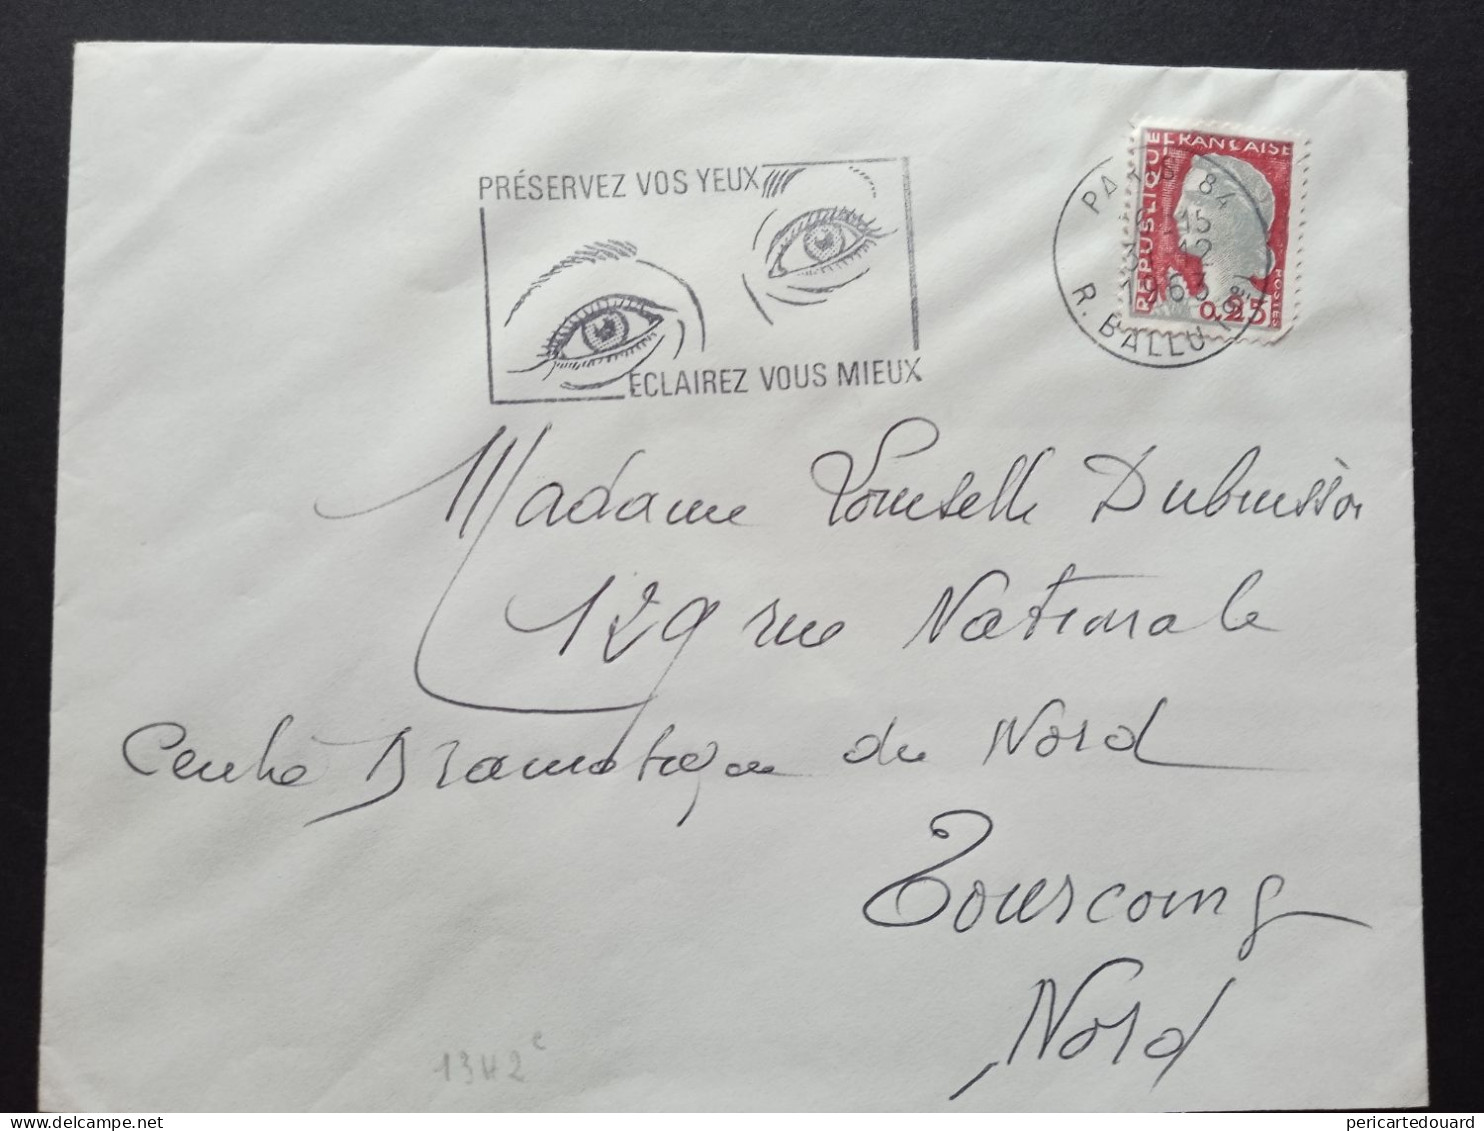 PRÉSERVEZ VOS YEUX
ÉCLAIREZ VOUS MIEUX
RÉPUBLIQUE FRANÇAISE
POSTES
0,25
84
15
12
1963
R. BALLU (9e)
Madame Dubuisson
129 rue Nationale
Centre Dramatique du Nord
Tourcoing
Nord
1342 e
delcampe.net
pericartedouard